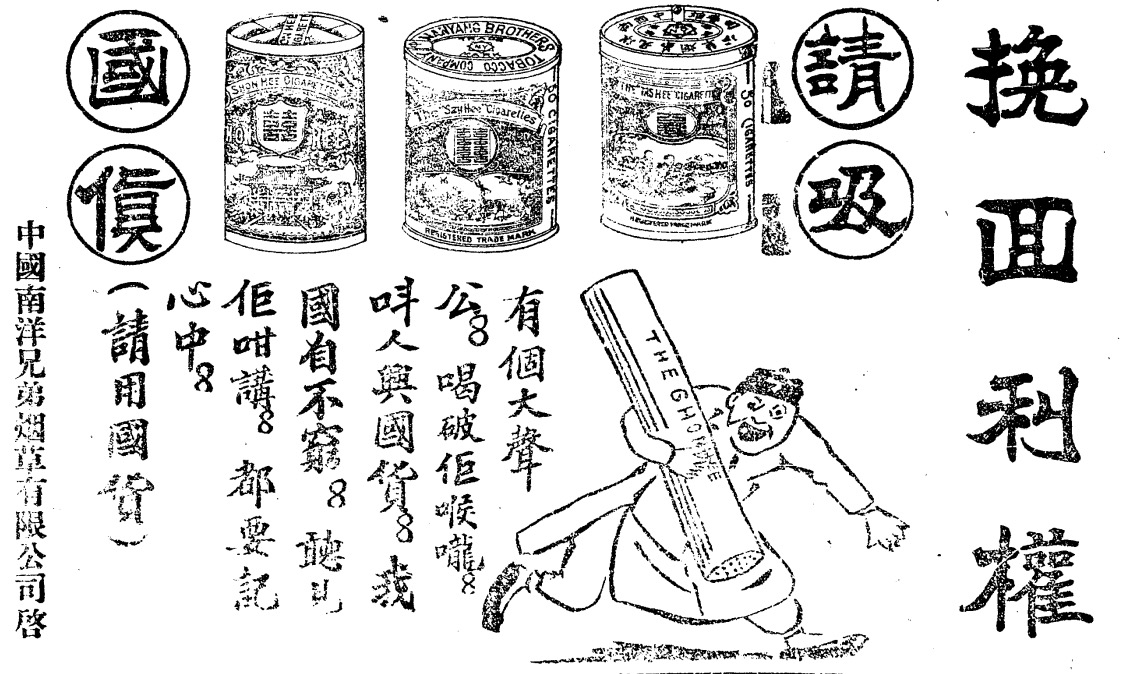 挽回利權
請吸
國貨
THE "TAS HEE" CIGARETTE
50 CIGARETTES
REGISTERED TRADE MARK
NANYANG BROTHERS TOBACCO COMPANY
The "San Hee" Cigarettes
50 CIGARETTES
REGISTERED TRADE MARK
SHON HEE CIGARETTES
有個大聲
公。喝破佢喉嚨。
呌人興國貨。我
國自不窮。聽見
佢咁講。都要記
心中。
(請用國貨)
中國南洋兄弟烟草有限公司啓